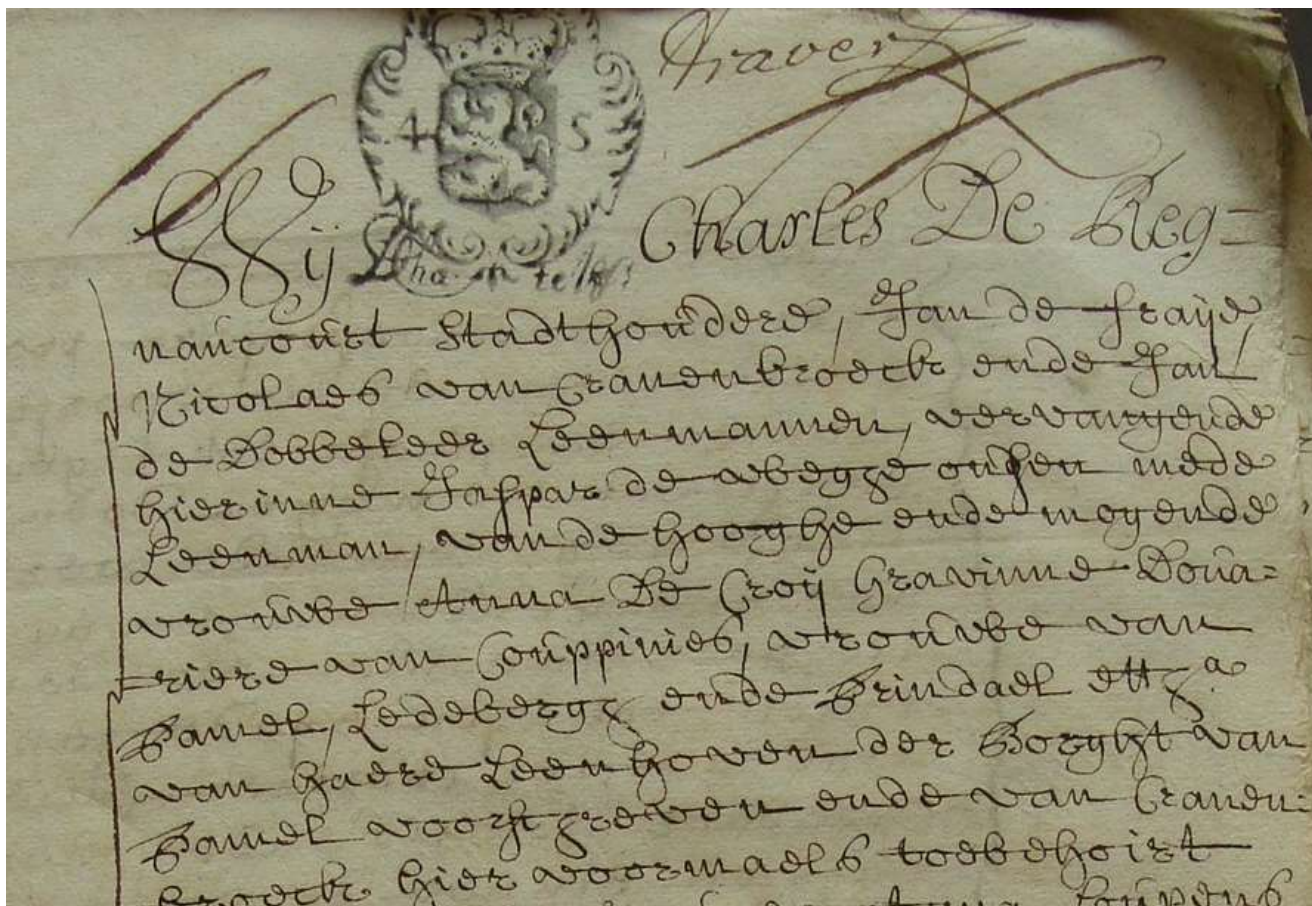 Traver
4 S
Wij Charles De Reg=
naucourt Stadthoudere, Jan de fraije,
Nicolaes van Cranenbroeck ende Jan
de Dobbeleer Leenmannen, vervangende
hierinne Jaspar de wegge onsen mede
Leenman, van de hooghe ende mogende
vrouwe Anna De Croij Gravinne Doua=
=riere van Couppinies, vrouwe van
Pamel, Ledebergh ende Brindael ettza
van haere Leenhoven der Borght van
Pamel voorschreven ende van Cranen=
broeck hier voormaels toebehoirt